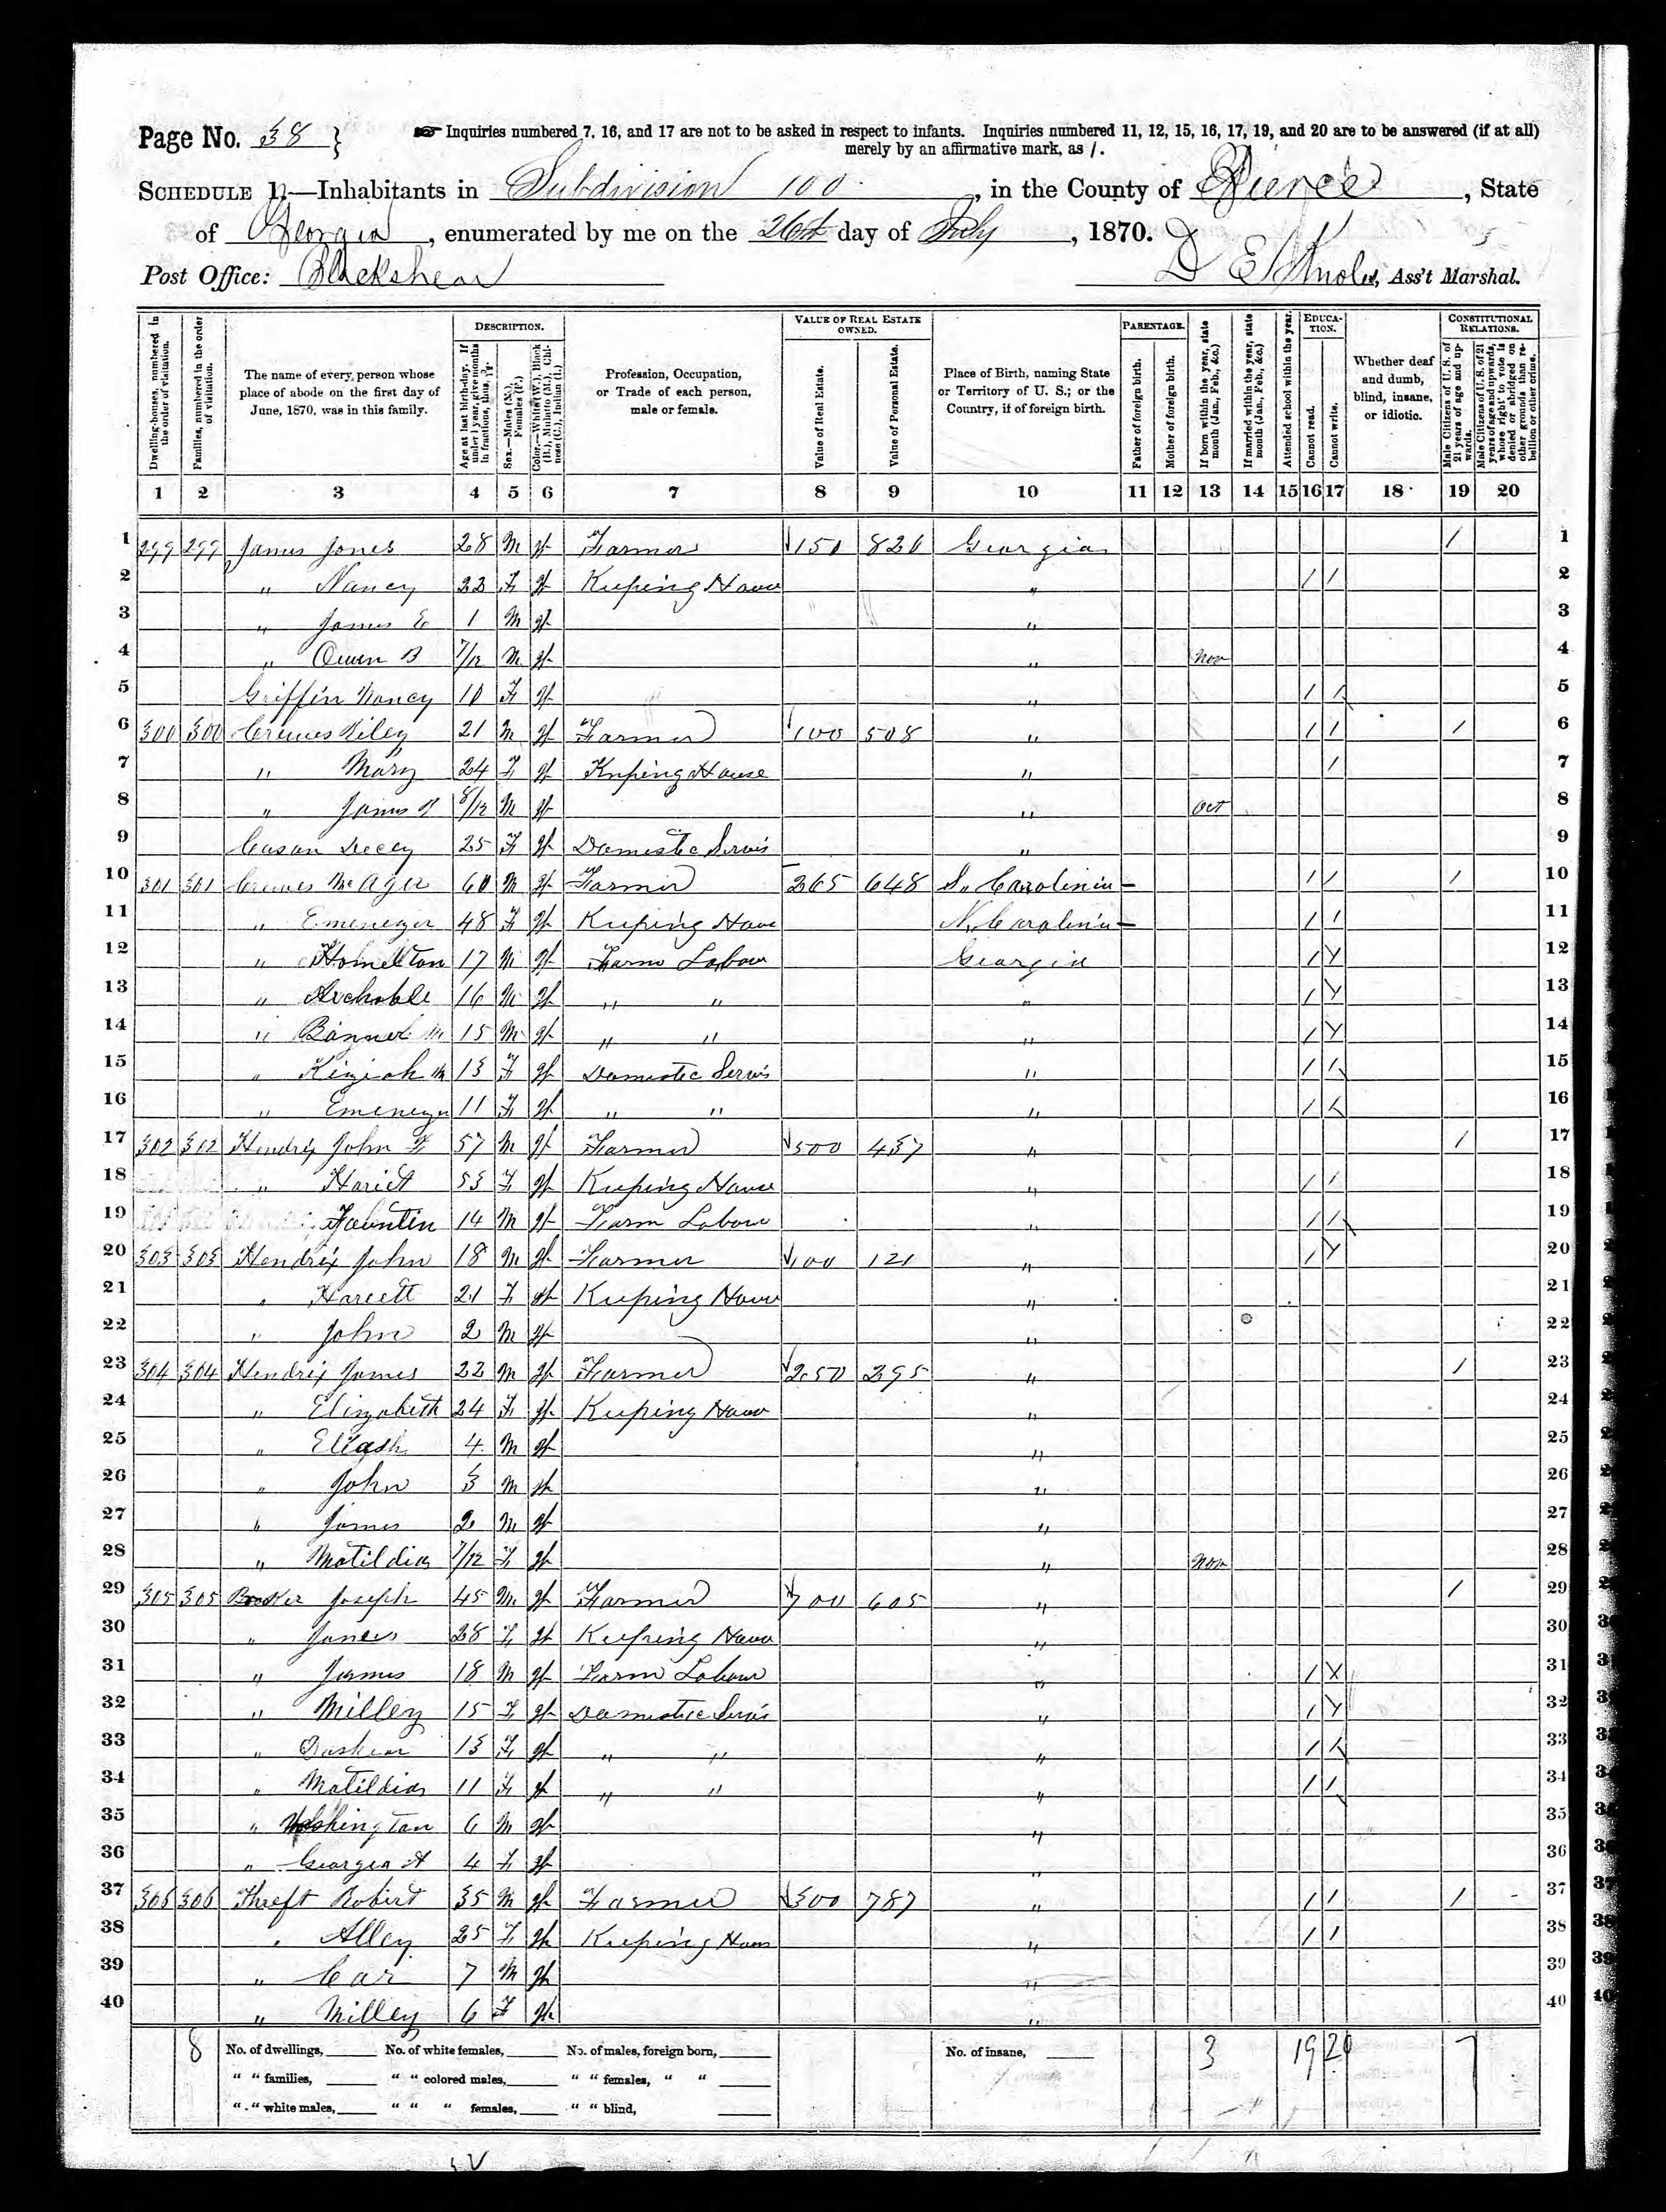 Page No. 38 }
Inquiries numbered 7, 16, and 17 are not to be asked in respect to infants. Inquiries numbered 11, 12, 15, 16, 17, 19, and 20 are to be answered (if at all)
merely by an affirmative mark, as /.
SCHEDULE 1.—Inhabitants in Subdivision 100, in the County of Pierce, State
of Georgia, enumerated by me on the 26th day of July, 1870.
Post Office: Blackshear
D E Knoles, Ass't Marshal.
Dwelling-houses, numbered in the order of visitation.
Families, numbered in the order of visitation.
The name of every person whose place of abode on the first day of June, 1870, was in this family.
DESCRIPTION.
Age at last birth-day. If under 1 year, give months in fractions, thus, 3/12.
Sex.—Males (M.), Females (F.)
Color.—White (W.), Black (B.), Mulatto (M.), Chinese (C.), Indian (I.)
Profession, Occupation, or Trade of each person, male or female.
VALUE OF REAL ESTATE OWNED.
Value of Real Estate.
Value of Personal Estate.
Place of Birth, naming State or Territory of U. S.; or the Country, if of foreign birth.
PARENTAGE.
Father of foreign birth.
Mother of foreign birth.
If born within the year, state month (Jan., Feb., &c.)
If married within the year, state month (Jan., Feb., &c.)
Attended school within the year.
EDUCATION.
Cannot read.
Cannot write.
Whether deaf and dumb, blind, insane, or idiotic.
CONSTITUTIONAL RELATIONS.
Male Citizens of U. S. of 21 years of age and upwards.
Male Citizens of U. S. of 21 years of age and upwards, whose right to vote is denied or abridged on other grounds than rebellion or other crime.
1 2 3 4 5 6 7 8 9 10 11 12 13 14 15 16 17 18 19 20
1 299 299 James Jones 28 M W Farmer 150 820 Georgia / 1
2 " Nancy 22 F W Keeping House " / / 2
3 " James E 1 M W " 3
4 " Owen B 7/12 M W " Nov 4
5 Griffin Nancy 10 F W " / / 5
6 300 300 Crewes Riley 21 M W Farmer 100 508 " / / / 6
7 " Mary 24 F W Keeping House " / 7
8 " James 8/12 M W " Oct 8
9 Cason 25 F W Domestic Servis " 9
10 301 301 Crewes 60 M W Farmer 265 648 S. Carolinia / / / 10
11 " Emenezer 48 F W Keeping House N. Carolinia / / 11
12 " Homelton 17 M W Farm Labour Georgia / Y 12
13 " Archoble 16 M W " " " / Y 13
14 " 15 M W " " " / Y 14
15 " Kiziah M 13 F W Domestic Servis " / / 15
16 " Emenezer 11 F W " " " / / 16
17 302 302 Hendrix John F 57 M W Farmer 500 437 " / 17
18 " Hariet 53 F W Keeping House " / / 18
19 Fountin 14 M W Farm Labour " / / 19
20 303 303 Hendrix John 18 M W Farmer 100 121 " / Y 20
21 " Hariett 21 F W Keeping House " 21
22 " John 2 M W " 22
23 304 304 Hendrix James 22 M W Farmer 250 295 " / 23
24 " Elizabeth 24 F W Keeping House " 24
25 " Eliash 4 M W " 25
26 " John 3 M W " 26
27 " James 2 M W " 27
28 " Matildia 7/12 F W " Nov 28
29 305 305 Booker Joseph 45 M W Farmer 700 605 " / 29
30 " 28 F W Keeping House " 30
31 " James 18 M W Farm Labour " / X 31
32 " Milley 15 F W Domestic Servis " / Y 32
33 " 13 F W " " " / / 33
34 " Matildia 11 F W " " " / / 34
35 " Washington 6 M W " 35
36 " Georgia A 4 F W " 36
37 306 306 Thrift Robert 35 M W Farmer 300 787 " / / / 37
38 " Alley 25 F W Keeping House " / / 38
39 " Car 7 M W " 39
40 " Milley 6 F W " 40
8 No. of dwellings, No. of white females, No. of males, foreign born, No. of insane, 3 19 20 7
" " families, " " colored males, " " females, " "
" " white males, " " " females, " " blind,